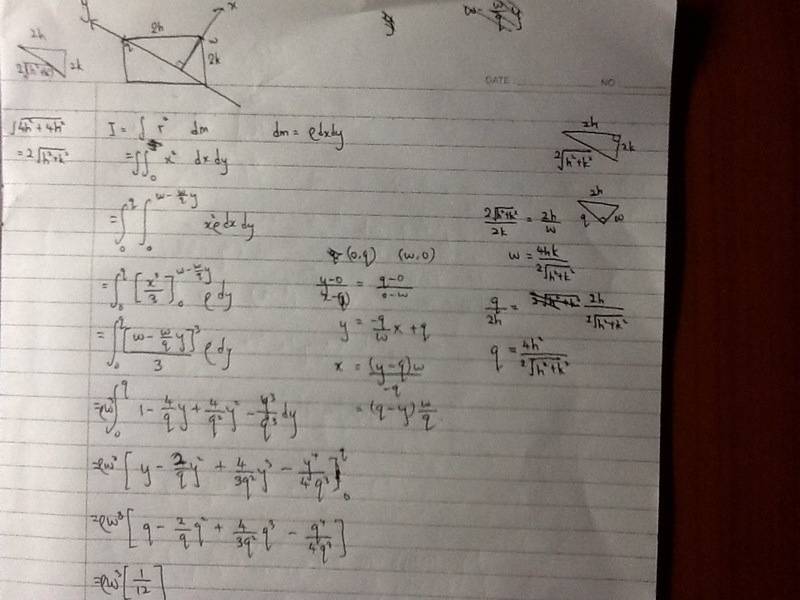 y
x
2h
2k
q
w
2h
2k
2√(h²+k²)
DATE
NO
√(4h²+4h²)
= 2√(h²+k²)
I = ∫ r² dm
dm = ρ dx dy
= ∫∫₀ x² dx dy
= ∫₀^q ∫₀^(w - w/q y) x²ρ dx dy
= ∫₀^q [x³/3]₀^(w - w/q y) ρ dy
= ∫₀^q [w - w/q y]³/3 ρ dy
= ρw³ ∫₀^q 1 - 4/q y + 4/q² y² - y³/q³ dy
= ρw³ [y - 2/q y² + 4/3q² y³ - y⁴/4q³]₀^q
= ρw³ [q - 2/q q² + 4/3q² q³ - q⁴/4q³]
= ρw³ [1/12]
(0,q) (w,0)
(y-0)/(x-q) = (q-0)/(0-w)
y = -q/w x + q
x = (y-q)w/-q
= (q-y) w/q
2h
2k
2√(h²+k²)
2h
q
w
2√(h²+k²)/2k = 2h/w
w = 4hk/2√(h²+k²)
q/2h = 2h/2√(h²+k²)
q = 4h²/2√(h²+k²)